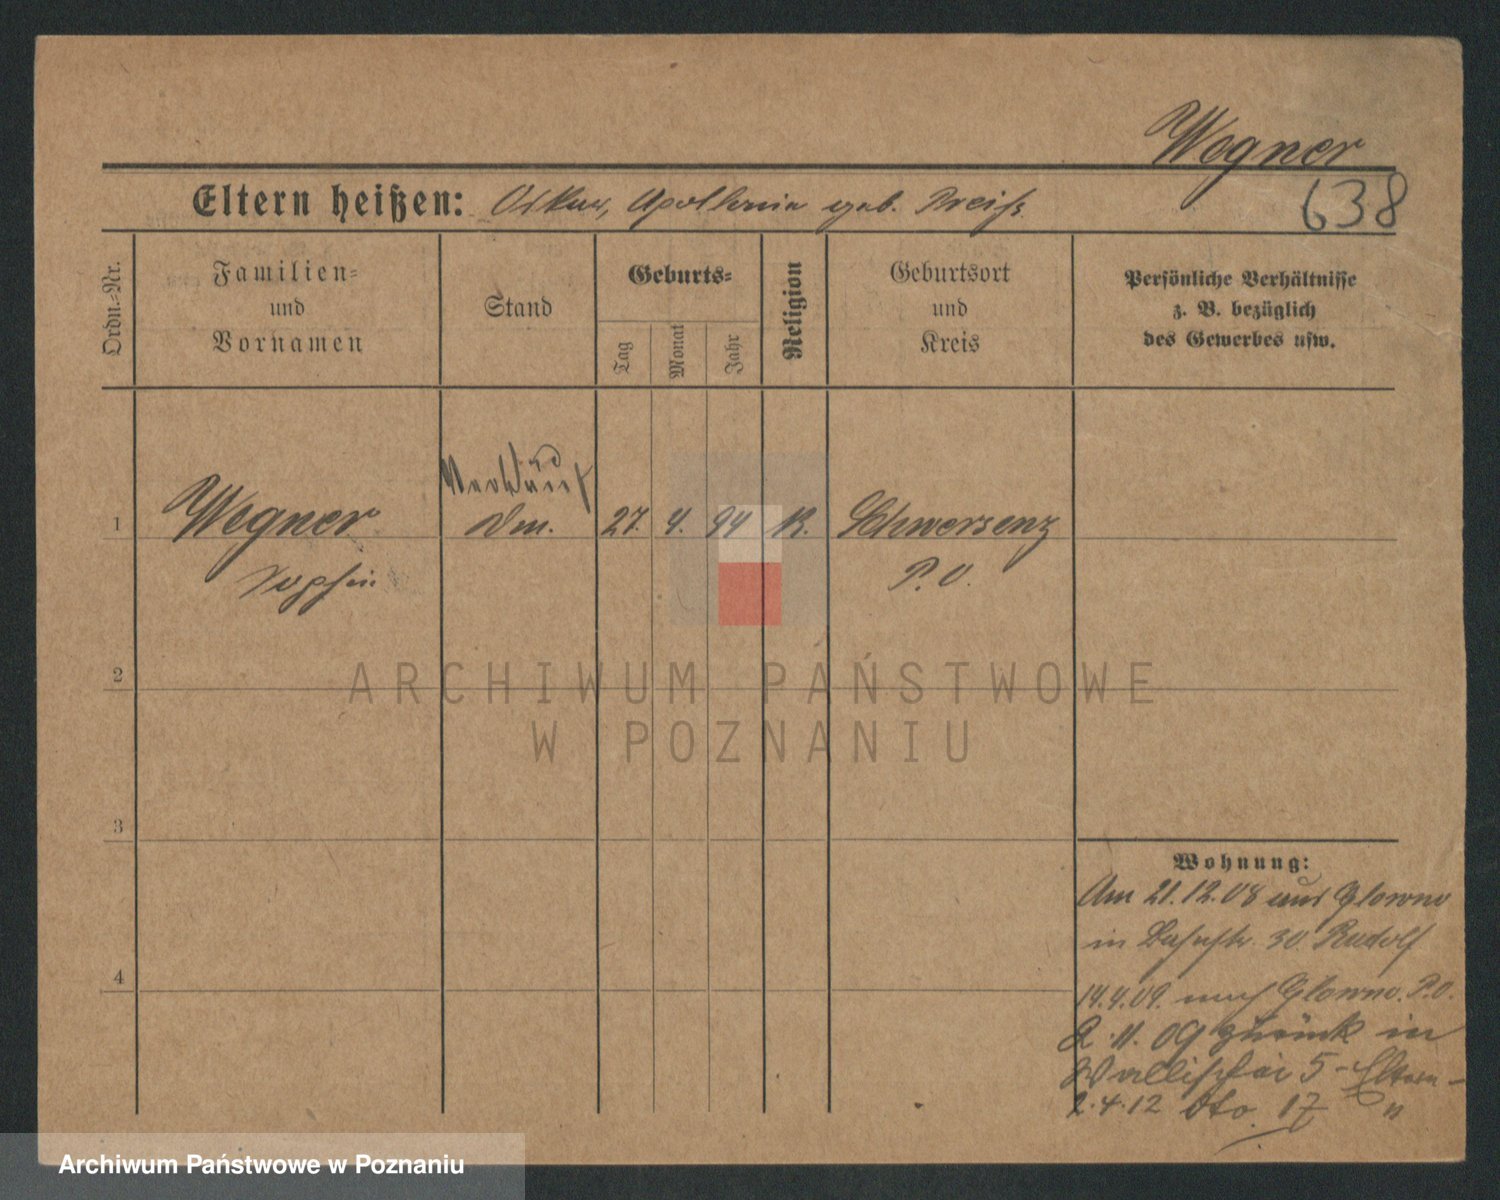 Wegner
638
Eltern heißen: Oskar, Apollonia geb. Preiß
Ordn.-Nr.
Familien-
und
Vornamen
Stand
Geburts-
Tag
Monat
Jahr
Religion
Geburtsort
und
Kreis
Persönliche Verhältnisse
z. B. bezüglich
des Gewerbes usw.
1
Wegner
Sophie
27. 4. 94
K.
Schwersenz
P.O.
2
3
4
ARCHIWUM PAŃSTWOWE
W POZNANIU
Wohnung:
Am 21.12.08 aus Glowno
in 30 Rudolf
14.4.09. nach Glowno. P.O.
2.11.09 zurück in
Wallischei 5 - Eltern -
2.4.12 dto. 17 "
Archiwum Państwowe w Poznaniu